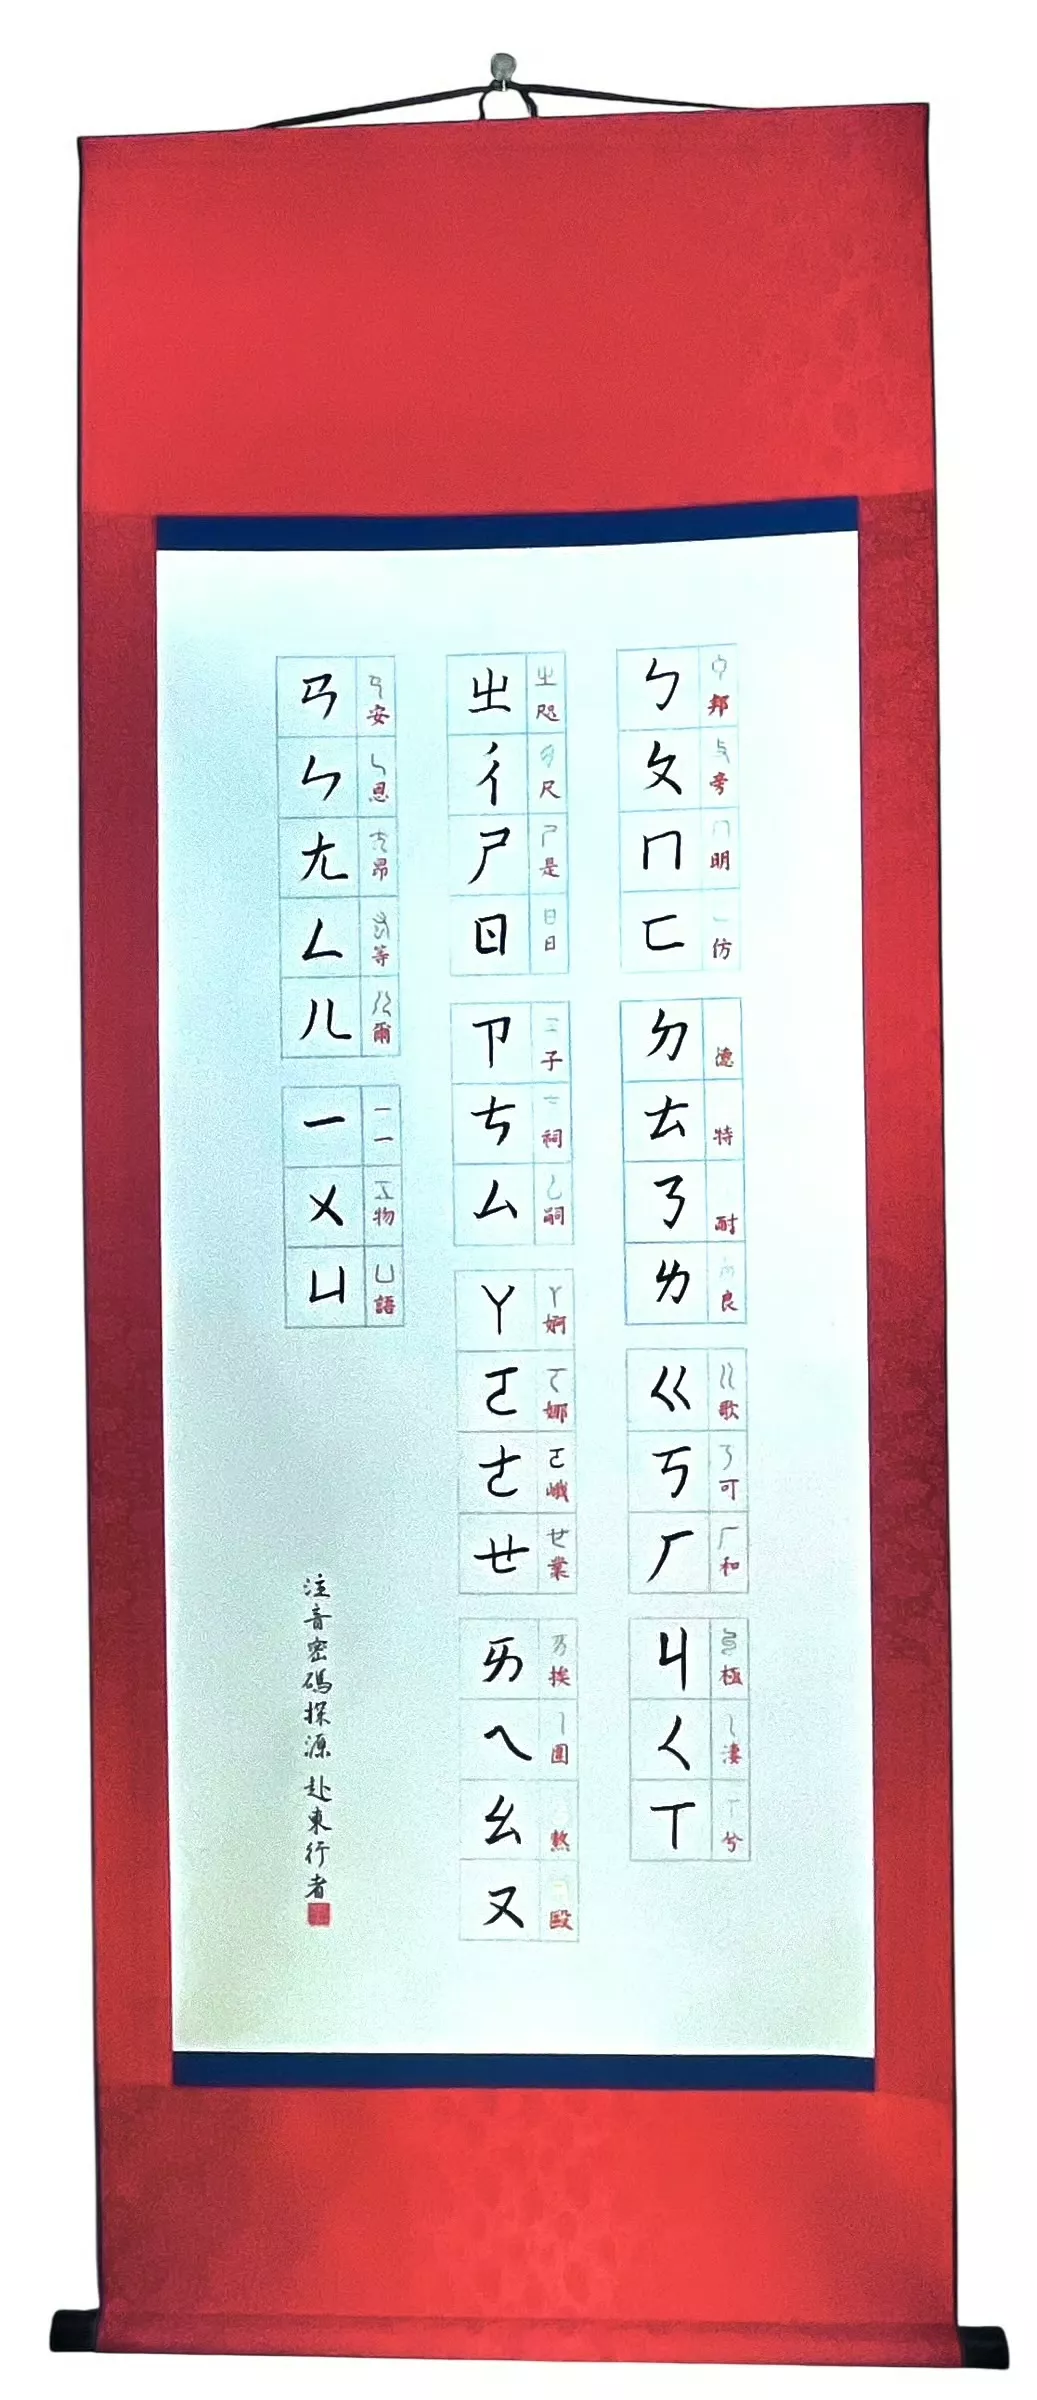 ㄅ 邦
ㄆ 旁
ㄇ 明
ㄈ 仿
ㄉ 德
ㄊ 特
ㄋ 耐
ㄌ 良
ㄍ 歌
ㄎ 可
ㄏ 和
ㄐ 極
ㄑ 淒
ㄒ 兮
ㄓ 咫
ㄔ 尺
ㄕ 是
ㄖ 日
ㄗ 子
ㄘ 祠
ㄙ 嗣
ㄚ 婀
ㄛ 娜
ㄜ 峨
ㄝ 業
ㄞ 挨
ㄟ
ㄠ 熬
ㄡ 毆
ㄢ 安
ㄣ 恩
ㄤ 昂
ㄥ 等
ㄦ 爾
ㄧ 一
ㄨ 物
ㄩ 語
注音密碼探源 赴東行者